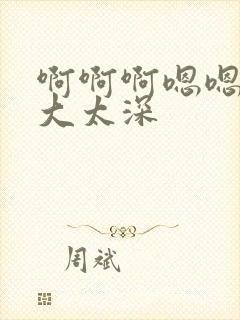 啊啊啊嗯嗯
大太深
周斌